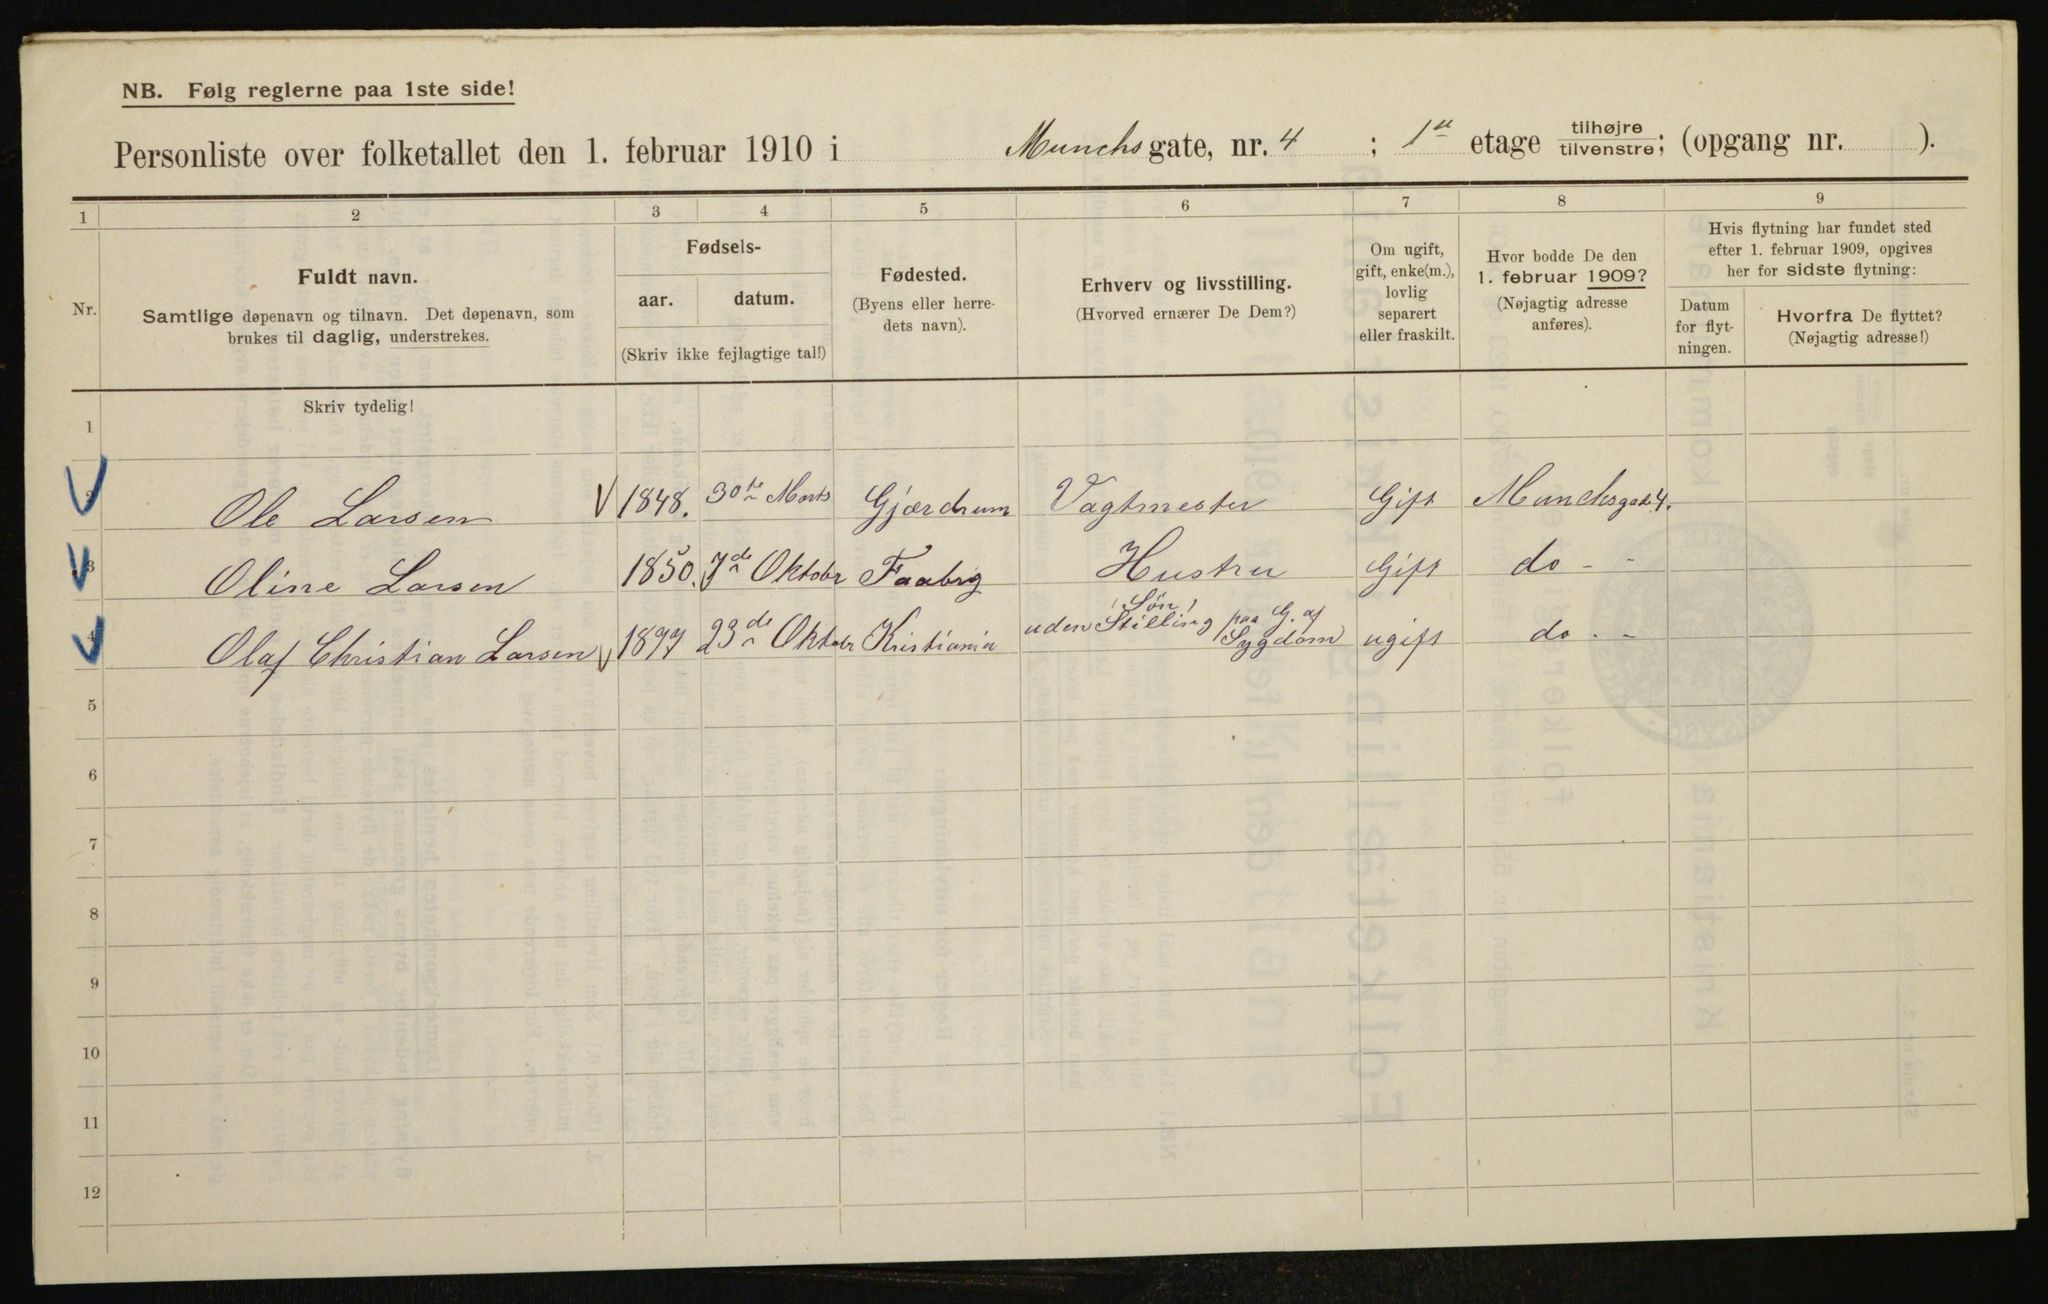 NB. Følg reglerne paa 1ste side!
Personliste over folketallet den 1. februar 1910 i Munchsgate, nr. 4 ; 1ste etage tilhøjre / tilvenstre; (opgang nr. ).
1 2 3 4 5 6 7 8 9
Nr.
Fuldt navn.
Samtlige døpenavn og tilnavn. Det døpenavn, som
brukes til daglig, understrekes.
Fødsels-
aar. datum.
(Skriv ikke fejlagtige tal!)
Fødested.
(Byens eller herre-
dets navn).
Erhverv og livsstilling.
(Hvorved ernærer De Dem?)
Om ugift,
gift, enke(m.),
lovlig
separert
eller fraskilt.
Hvor bodde De den
1. februar 1909?
(Nøjagtig adresse
anføres).
Hvis flytning har fundet sted
efter 1. februar 1909, opgives
her for sidste flytning:
Datum
for flyt-
ningen.
Hvorfra De flyttet?
(Nøjagtig adresse!)
Skriv tydelig!
1
2 Ole Larsen 1848. 30te Marts Gjærdrum Vagtmester Gift Munchsgade 4.
3 Oline Larsen 1850. 7de Oktobr Faabrg Hustru Gift do - -
4 Olaf Christian Larsen 1877 23de Oktobr Kristiania (Søn) uden Stilling paa G. af Sygdom ugift do - -
5
6
7
8
9
10
11
12